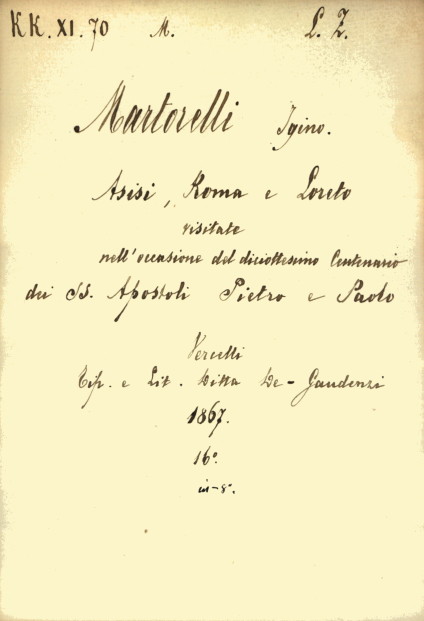 KK. XI. 70 M. L. Z.
Martorelli Igino.
Asisi, Roma e Loreto
visitate
nell'occasione del diciottesimo Centenario
dei SS. Apostoli Pietro e Paolo
Vercelli
Tip. e Lit. Ditta De-Gaudenzi
1867.
16°.
in-8°.